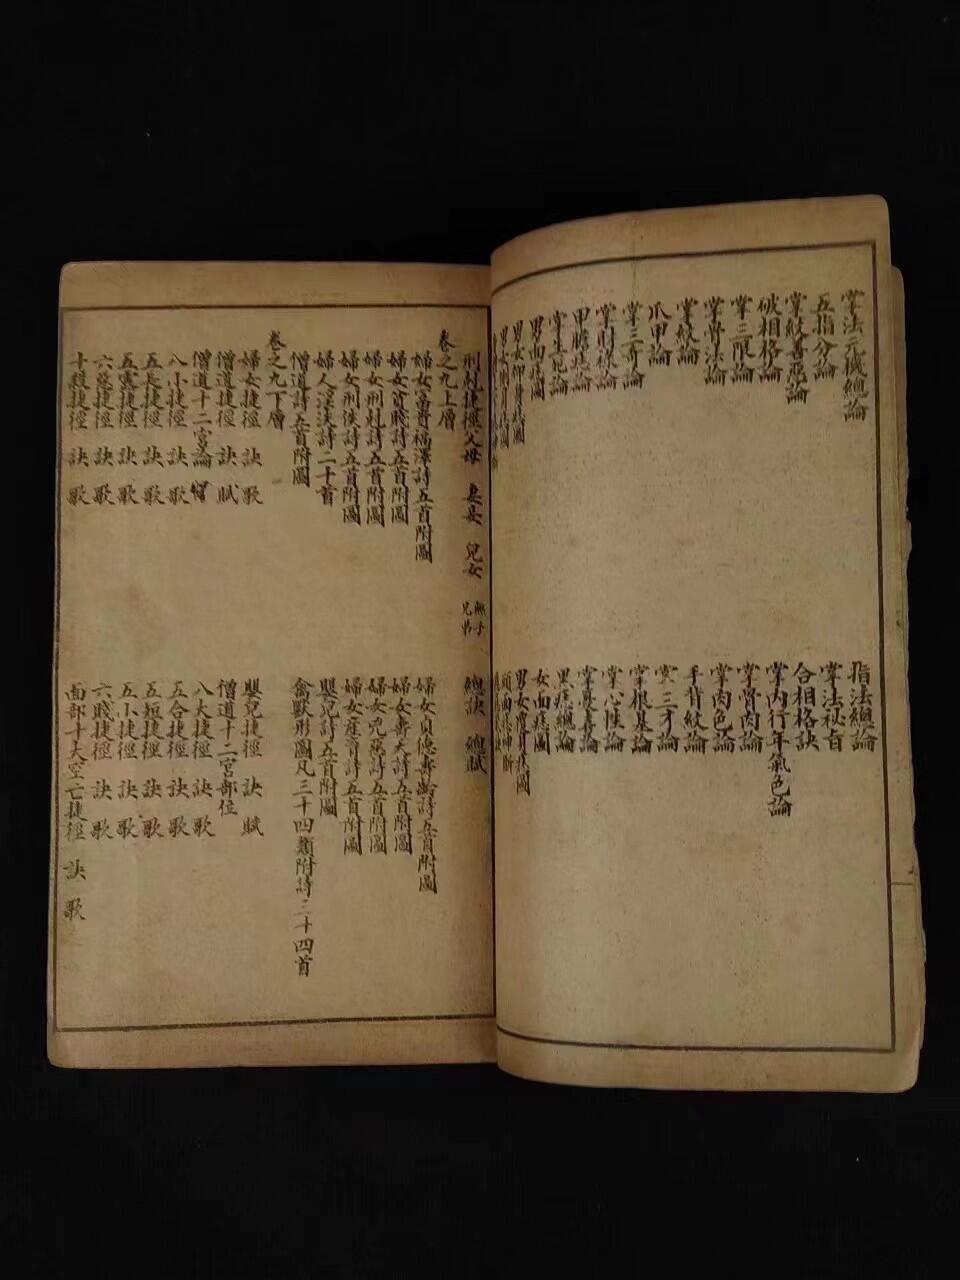 掌法元機總論
指法總論
五指分論
掌法祕旨
掌紋善惡論
合相格訣
破相格論
掌內行年氣色論
掌三限論
掌骨肉論
掌骨法論
掌肉色論
掌紋論
手背紋論
爪甲論
掌三才論
掌三奇論
掌根基論
掌財祿論
掌心性論
甲膽志論
掌憂喜論
掌生尅論
黑痣總論
男面痣圖
女面痣圖
男女仰身痣圖
男女覆身痣圖
刑尅捷徑 父母 妻妾 兒女 無子 兄弟 總訣 總賦
卷之九上層
婦女富貴福澤詩五首附圖
婦女貞德壽齡詩五首附圖
婦女貧賤詩五首附圖
婦女壽夭詩五首附圖
婦女刑尅詩五首附圖
婦女兇惡詩五首附圖
婦女刑佚詩五首附圖
婦女產育詩五首附圖
婦人淫泆詩二十首
嬰兒詩五首附圖
僧道詩五首附圖
禽獸形圖凡三十四類附詩三十四首
卷之九下層
婦女捷徑 訣 歌
嬰兒捷徑 訣 賦
僧道捷徑 訣 賦
僧道十二宮部位
僧道十二宮論
八大捷徑 訣 歌
八小捷徑 訣 歌
五合捷徑 訣 歌
五長捷徑 訣 歌
五短捷徑 訣 歌
五露捷徑 訣 歌
五小捷徑 訣 歌
六惡捷徑 訣 歌
六賤捷徑 訣 歌
十殺捷徑 訣 歌
面部十大空亡捷徑 訣 歌